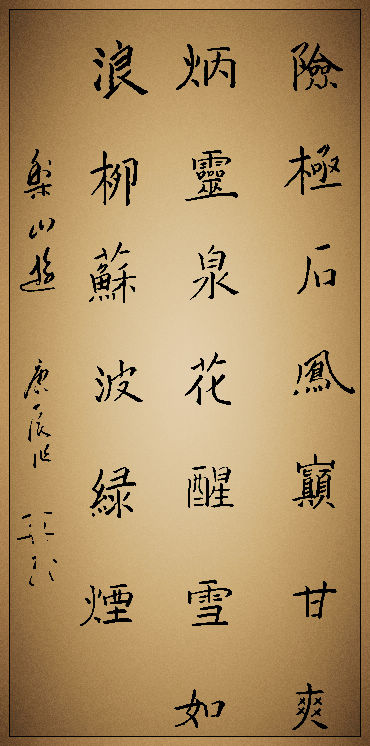 險極石鳳巔甘爽
炳靈泉花醒雪如
浪柳蘇波綠煙
樂山遊 庚辰